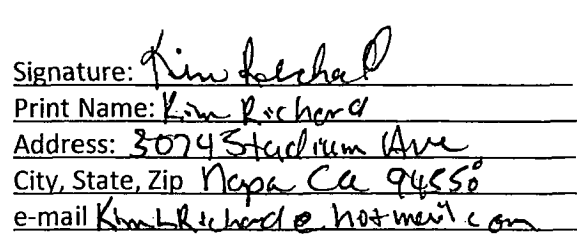 Signature: Kim Richard
Print Name: Kim Richard
Address: 3074 Stadium Ave
City, State, Zip Napa Ca 94558
e-mail KimLRichard@hotmail.com